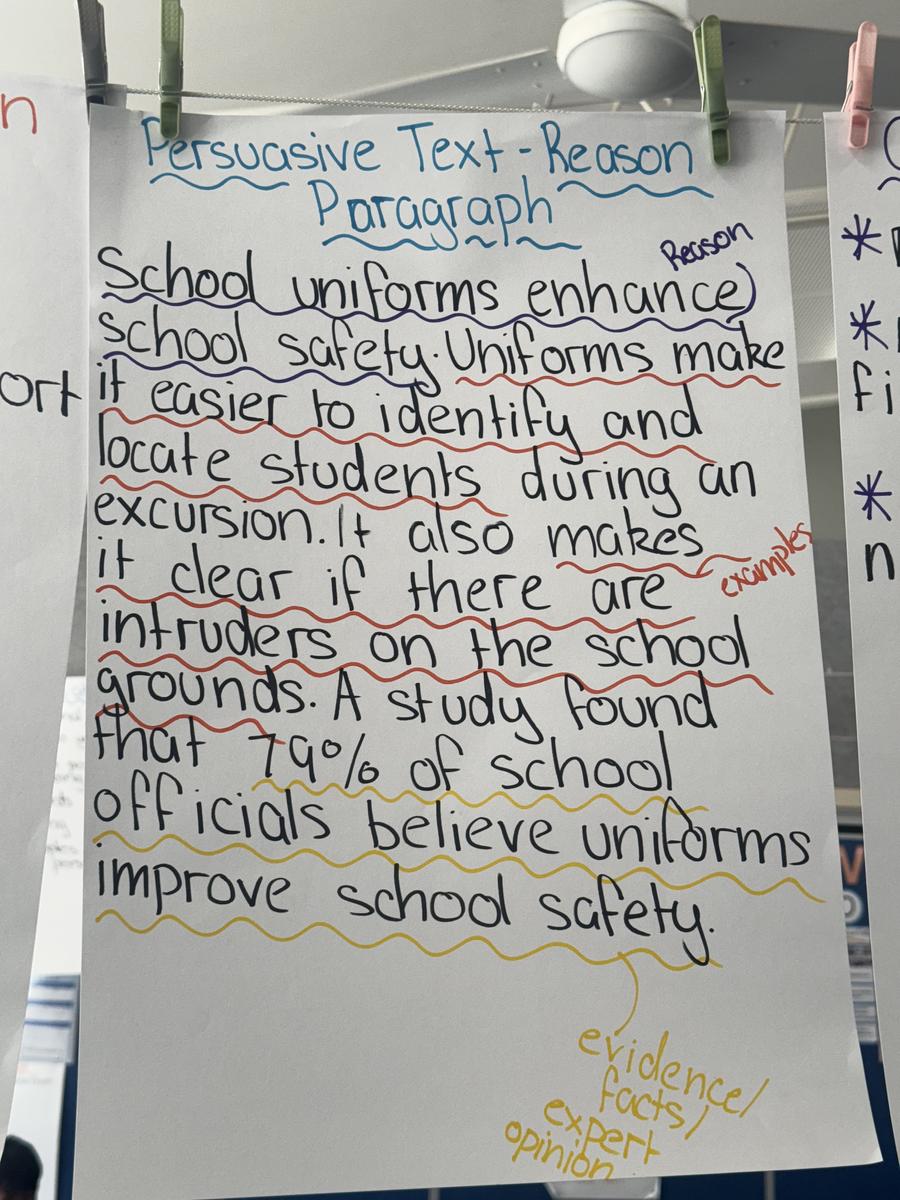 Persuasive Text - Reason
Paragraph
Reason
School uniforms enhance
school safety. Uniforms make
it easier to identify and
locate students during an
excursion. It also makes
examples
it clear if there are
intruders on the school
grounds. A study found
that 79% of school
officials believe uniforms
improve school safety.
evidence/
facts/
expert
opinion
n
ort
*
*
fi
*
n